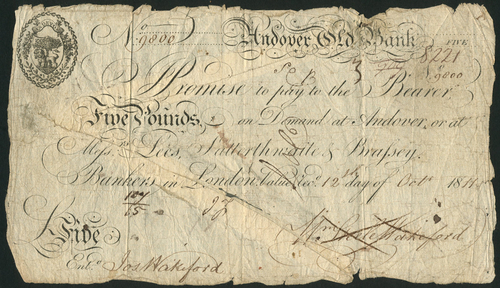 No 9800 Andover Old Bank FIVE
8221
No 9800
I Promise to pay to the Bearer
Five Pounds, on Demand at Andover, or at
Messrs Lees, Satterthwaite & Brassey,
Bankers in London, Value Recd 12 day of Octr
107
65
Five
Wm Wakeford
Entd Jos Wakeford